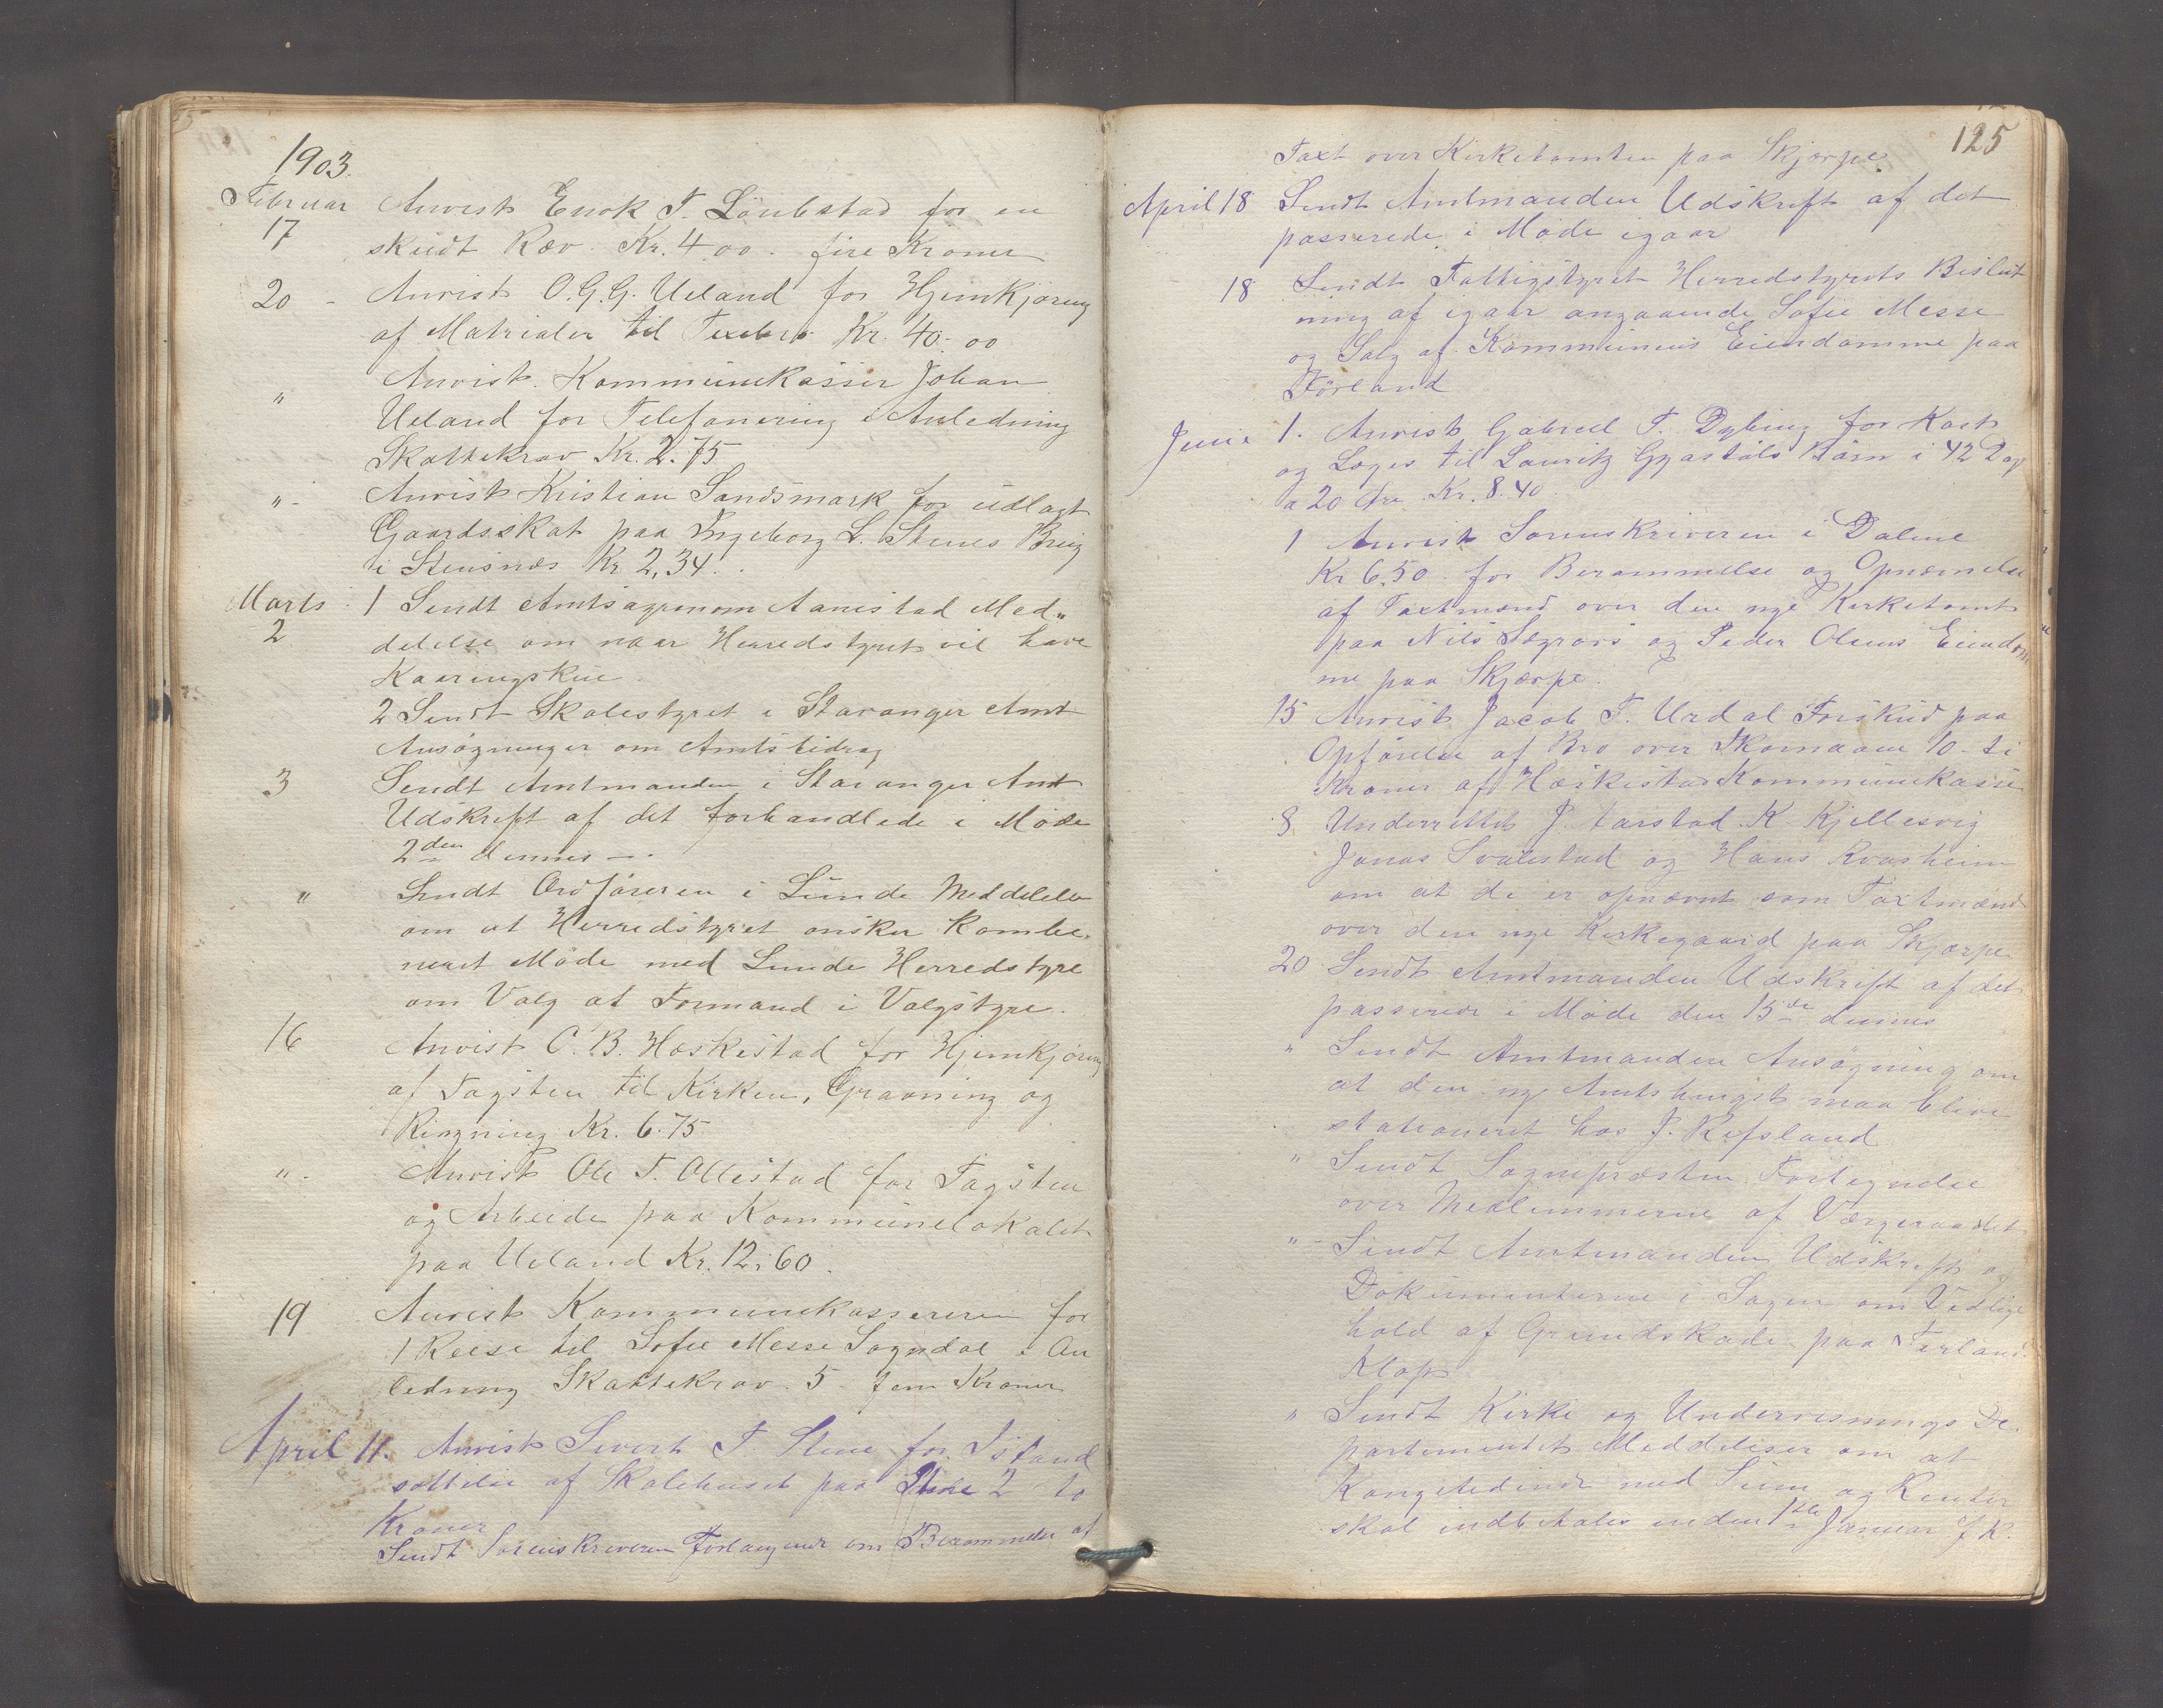 1903.
Februar Anvist Enok T. Löubstad for en
17 skudt Ræv. Kr. 4.00. fire Kroner
20 - Anvist O.G.G. Ueland for Hjemkjöring
af Matrialer til Kr. 40.00
" Anvist. Kommunekasser Johan
Ueland for Telefonering i Anledning
Skattekrav Kr. 2.75
" - Anvist Kristian Sandsmark for udlagt
Gaardsskat paa Ingeborg L. Steines Brug
i Steisnæs Kr 2,34.
Marts 1 Sendt Amtsagronom Aanestad Med„
2 delelse om naar Herredstyret vil have
Kaaringskue.
2 Sendt Skolestyret i Stavanger Amt
Ansögninger om Amtsbidrag
3 Sendt Amtmanden i Stavanger Amt
Udskrift af det forhandlede i Möde
2den dennes -.
" Sendt Ordföreren i Lunde Meddelelse
om at Herredstyret önsker kombi„
neret Möde med Lunde Herredstyre
om Valg at Formand i Valgstyre.
16 Anvist O. B. Hæskestad for Hjemkjöring
af Tagsten til Kirken, Gravning og
Ringning Kr. 6.75
" . Anvist Ole T. Ollestad for Tagsten
og Arbeide paa Kommunelokalet
paa Ueland Kr. 12.60.
19 Anvist Kommunekassereren for
1 Reise til Sofie Messe Sogndal i An
ledning Skattekrav. 5 fem Kroner
April 11. Anvist Sivert T. Stene for Istand
sættelse af Skolehuset paa Stene 2 to
Kroner
Sendt Sorenskriveren Forlangende om Berammelse af
125
Taxt over Kirketomten paa Skjærpe
April 18 Sendt Amtmanden Udskrift af det
passerede i Möde igaar
18 Sendt Fattigstyret Herredstyrets Beslut
ning af igaar angaaende Sofie Messe
og Salg af Kommunens Eiendomme paa
Förland
Juni 1. Anvist Gabriel T. Dybing for Kost
og Loges til Lauritz Barn i 42 Dage
a 20 Öre Kr. 8.40.
1 Anvist Sorenskriveren i Dalene
Kr 6.50 for Berammelse og Opnævnelse
af Taxtmænd over den nye Kirketomt
paa Nils Ægrövs og Peder Olsens Eiendom
me paa Skjærpe.
15 Anvist Jacob T. Urdal Forskud paa
Opförelse af Bro over 10 - ti
Kroner af Hæskestad Kommunekasse
8 Underrettet J. Aarstad K. Kjellesvig
Jonas Svalestad og Hans Kvasheim
om at de er opnævnt som Taxtmænd
over den nye Kirkegaard paa Skjærpe
20 Sendt Amtmanden Udskrift af det
passerede i Möde den 15de dennes
" Sendt Amtmanden Ansögning om
at den nye Amtshingst maa blive
stationeret hos J. Refsland
" Sendt Sognepræsten Fortegnelse
over Medlemmerne af Værgeraadet
" - Sendt Amtmanden Udskrift og
Dokumenterne i Sagen om Vedlige
hold af Grundskade paa Ferland
Klop
" Sendt Kirke og Undervisnings De„
partementet Meddelelser om at
Kongetiende med Sum og Renter
skal indbetales inden 1ste Januar f. K.